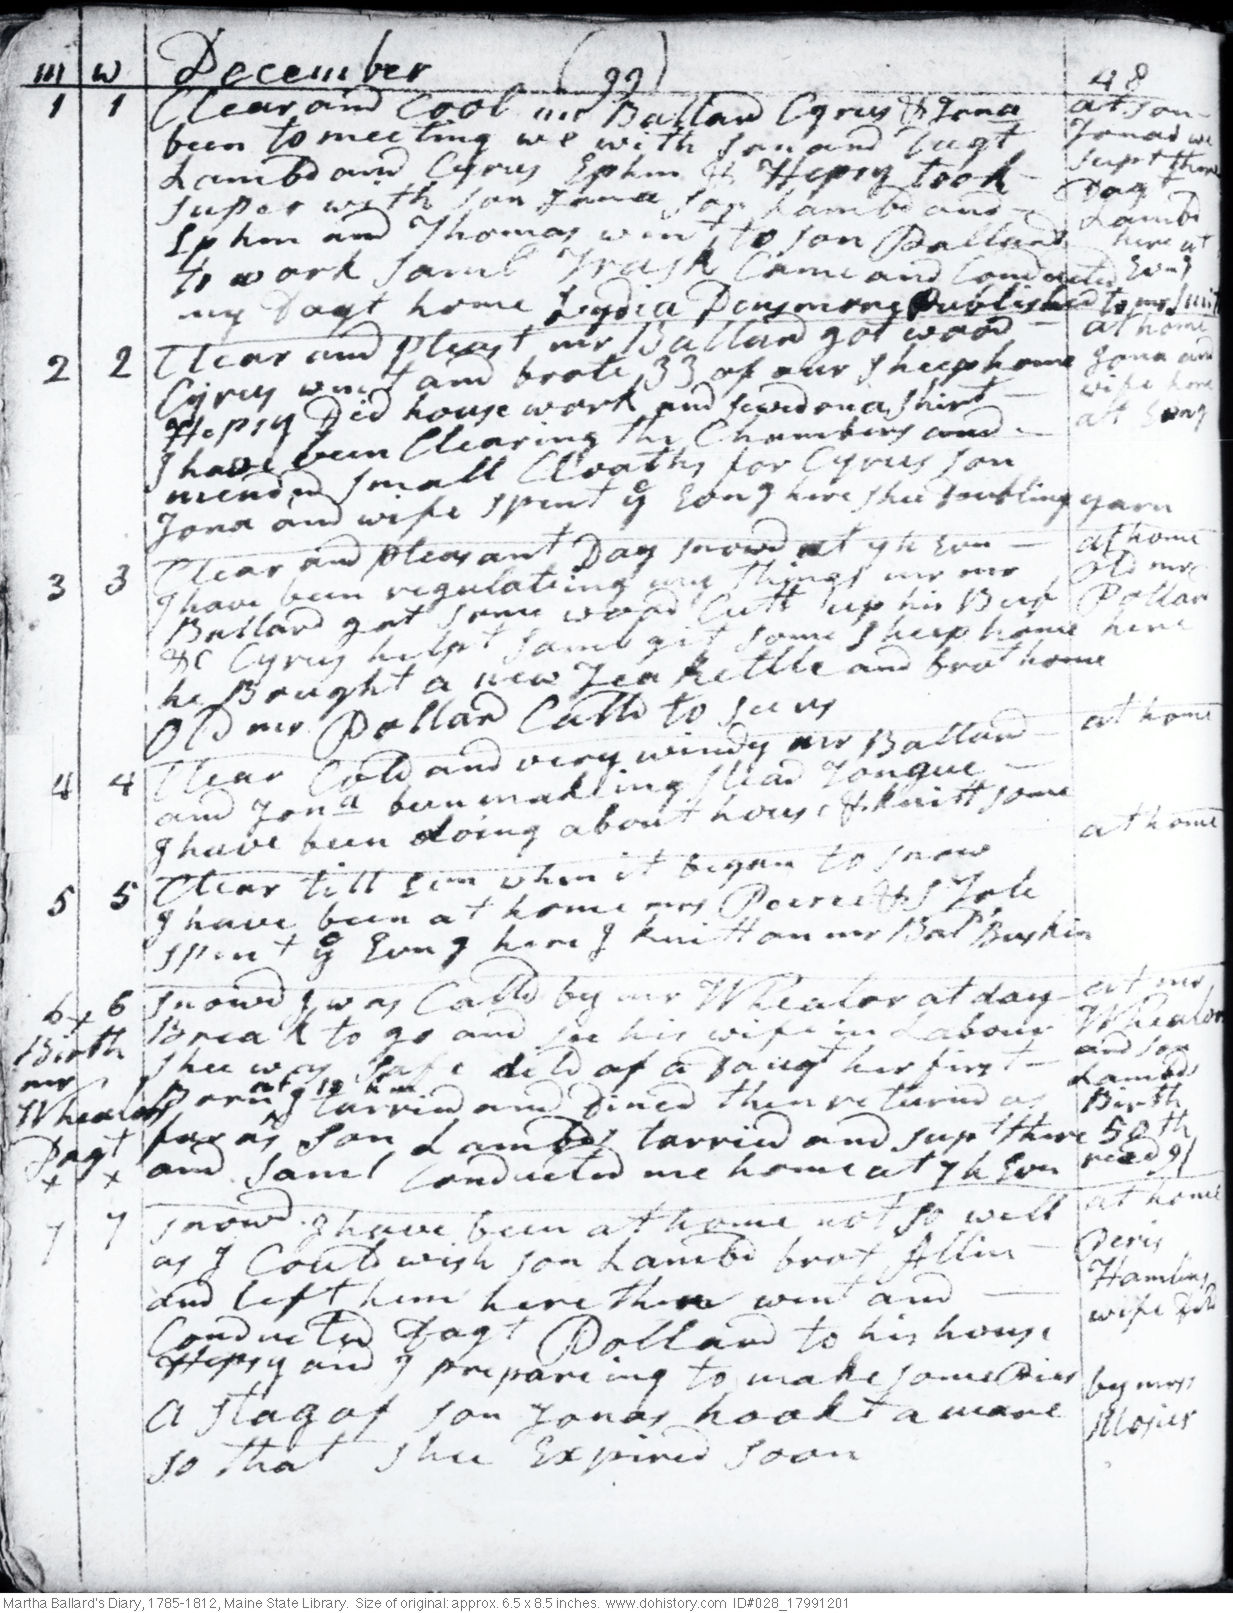 m w December (99) 48
1 1 Clear and Cool mr Ballard Cyrus & Jona at son
been to meeting we with son and Dagt Jonas we
Lambd and Cyrus Ephm & Hepsy took supt there
super with son Jona son Lambd and Dagt
Ephm and Thomas went to son Pollards Lambd
to work Saml Trask Came and Conducted here at Evng
my Dagt home Lydia Densmore Published to mr Smith
2 2 Clear and Pleast mr Ballard got wood at home
Cyrus went and brote 33 of our sheep home Jona and
Hepsy Did house work and sewd on a shirt wife here
I have been Clearing the Chambers and at Evng
mended small Cloaths for Cyrus son
Jona and wife spent ye Evng here shee doubling yarn
3 3 Clear and pleasant Day snowd at 7 h Evn at home
I have been regulating my things mr Old mr
Ballard got some wood Cutt up his Beef Pollar
&c Cyrus helpt Saml git some sheep home here
he Bought a new Teakettle and brot home
Old mr Pollard Calld to see us
4 4 Clear Cold and very windy mr Ballard at home
and Jona been making slead Tongue
I have been doing about house & knitt some
5 5 Clear till Evn when it began to snow at home
I have been at home mrs Peirce & S Tole
spent ye Evng here I knitt on mr Bal's Buskin
6 + 6 snowd I was Calld by mr Whealor at day at mr
Birth Break to go and see his wife in Labour Whealor
mr shee was safe deld of a Daughter her first and son
Whealors Born at 12 h m I tarried and Dined then returnd as Lambds
Dagt far as son Lambds tarried and supt there Birth 50th
x x and Saml Conducted me home at 7 h Evn recd 9/
7 7 snowd. I have been at home not so well at home
as I Could wish son Lambd brot Allin Peris
and left him here then went and Hamlins
Conducted Dagt Pollard to his house wife Deld
Hepsy and I prepareing to make some Pies by mrs
A stag of son Jonas hookt a mare Mosier
so that shee Expired soon
Martha Ballard's Diary, 1785-1812, Maine State Library. Size of original: approx. 6.5 x 8.5 inches. www.dohistory.com ID#028_17991201